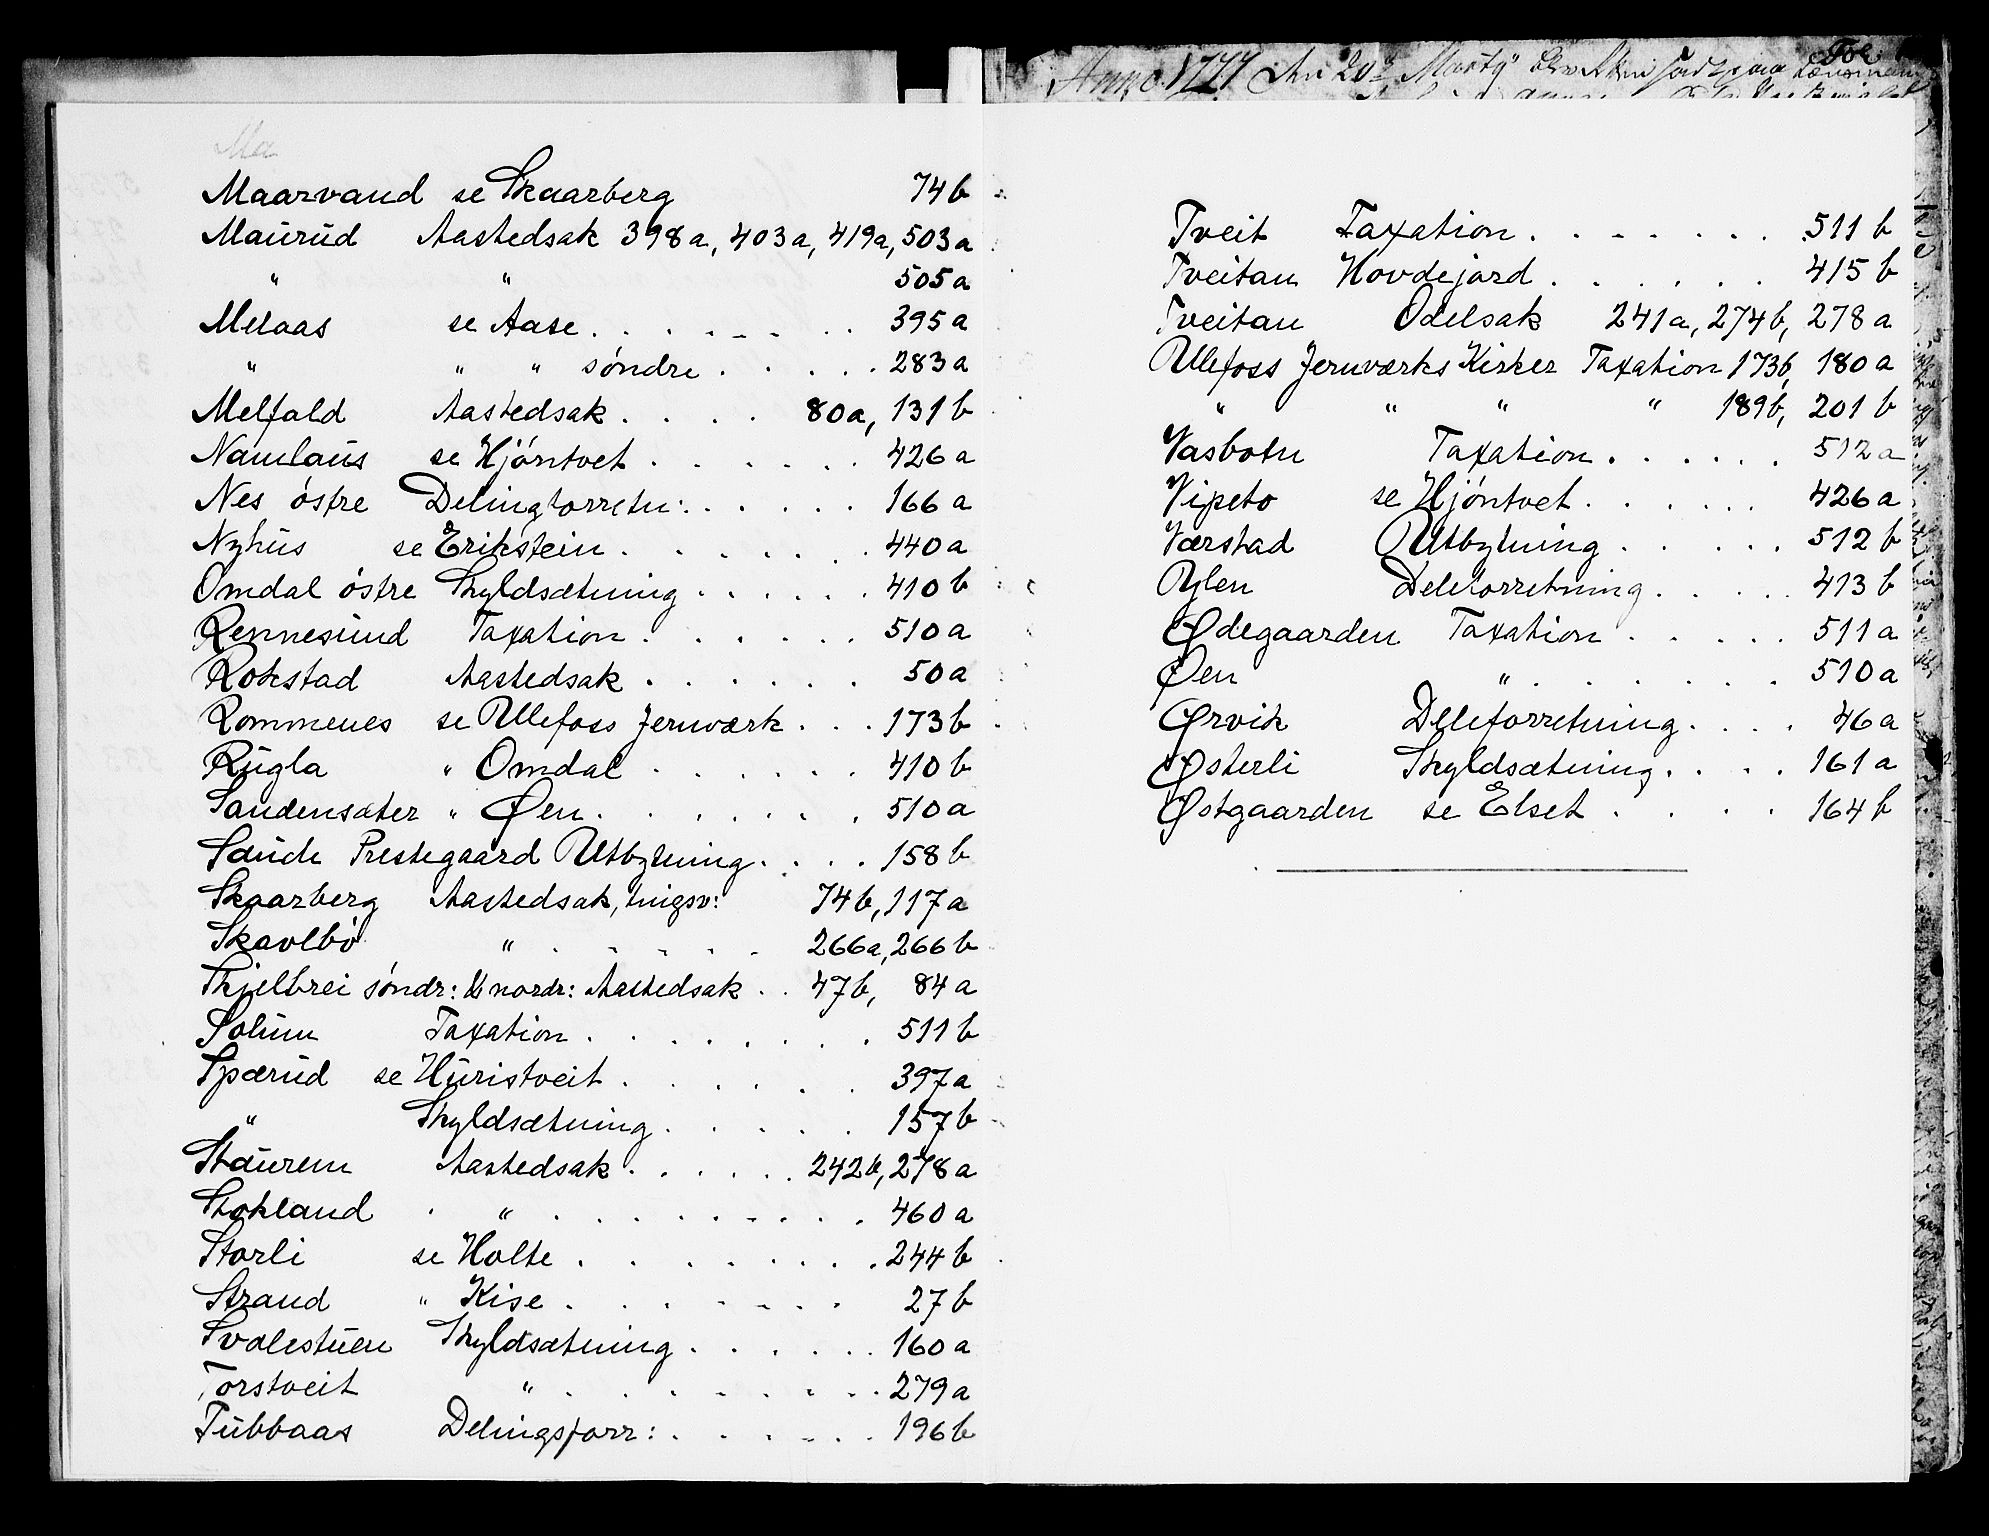 Ma
Maarvand se Skaarberg 74b
Maurud Aastedsak 398a, 403a, 419a, 503a
" " 505a
Melaas se Aase . . . . . . . 395a
" " " söndre . . . . . 283a
Melfald Aastedsak . . . . 80a, 131b
Namlaus se Hjöntvet . . . . . . 426a
Nes östre Delingforretn: . . . . . 166a
Nyhus se Erikstein . . . . . . 440a
Omdal östre Skyldsætning . . . . . 410b
Rennesund Taxation . . . . . . 510a
Rokstad Aastedsak . . . . . . 50a
Rommenes se Ulefoss Jernværk . . . 173b
Rugla " Omdal . . . . . . 410b
Sandensæter " Øen . . . . . . . 510a
Saude Prestegaard Utbytning . . . . 158b
Skaarberg Aastedsak, tingsv: 74b, 117a
Skavlbö " . . . . . . 266a, 266b
Skjelbrei söndr: & nordr: Aastedsak . . 47b, 84a
Solum Taxation . . . . . . . . 511b
Spærud se Huristveit . . . . . . 397a
" Skyldsætning . . . . . 157b
Staurem Aastedsak . . . . . . 242b, 278a
Stokland " . . . . . . . . 460a
Storli se Holte . . . . . . . 244b
Strand " Kise . . . . . . 27b
Svalestuen Skyldsætning . . . . . . 160a
Torstveit " . . . . . . . . 279a
Tubbaas Delingsforr: . . . . . . 196b
Anno 1777 den 20de Marty
Tveit Taxation . . . . . . . 511b
Tveitan Hovdejord . . . . . . 415b
Tveitan Odelsak 241a, 274b, 278a
Ulefoss Jernværks Kirker Taxation 173b, 180a
" " " " 189b, 201b
Vasbotn Taxation . . . . . . 512a
Vipeto se Hjöntvet . . . . . . 426a
Værstad Utbytning . . . . . 512b
Ylen Deleforretning . . . . . 413b
Ødegaarden Taxation . . . . . 511a
Øen " . . . . . . . 510a
Ørvik Deleforretning . . . . 46a
Østerli Skyldsætning . . . . 161a
Østgaarden se Elset . . . . 164b